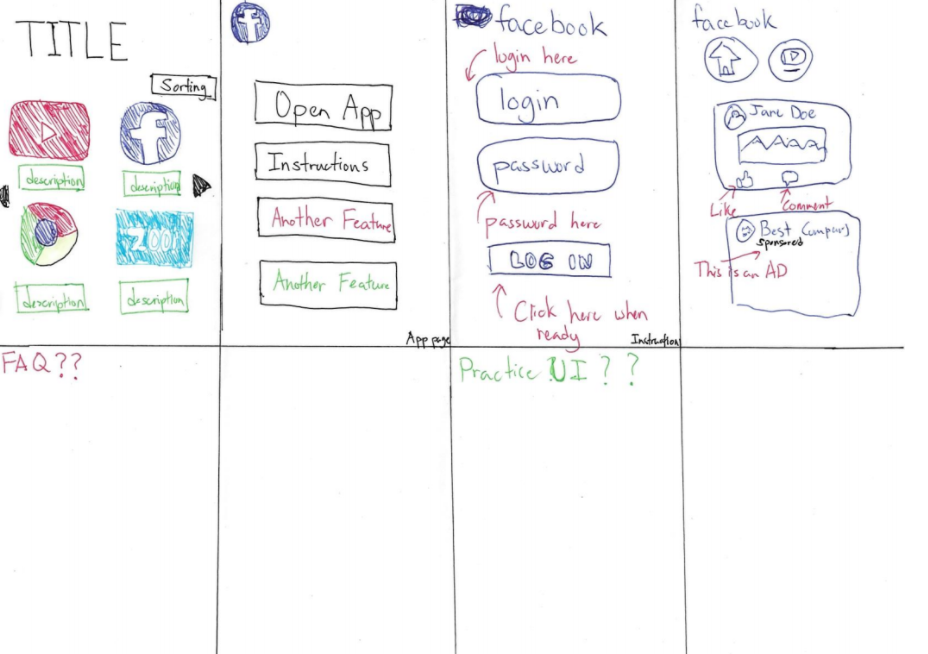 TITLE
Sorting
description
description
zoom
description
description
Open App
Instructions
Another Feature
Another Feature
App page
facebook
login here
login
password
password here
LOG IN
Click here when
ready
Instruction
facebook
Jane Doe
Like
Comment
Best Company
sponsored
This is an AD
FAQ??
Practice UI ? ?